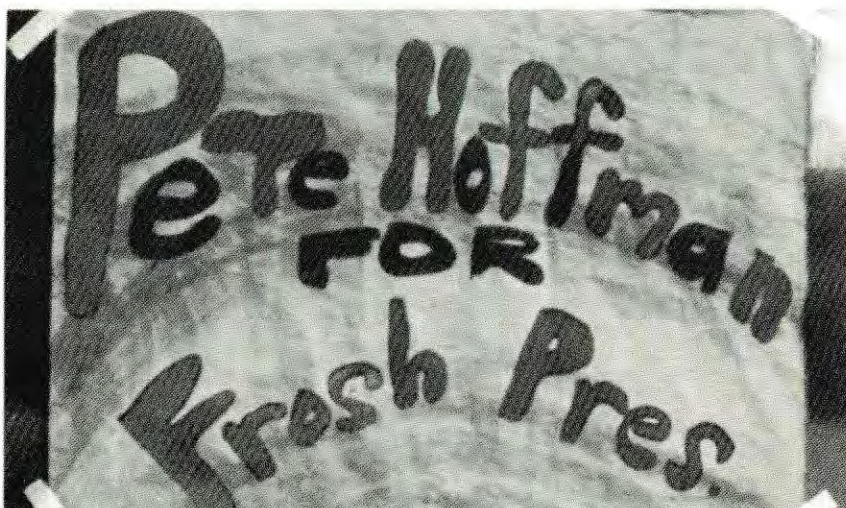 PeTe Hoffman
FOR
Frosh Pres.